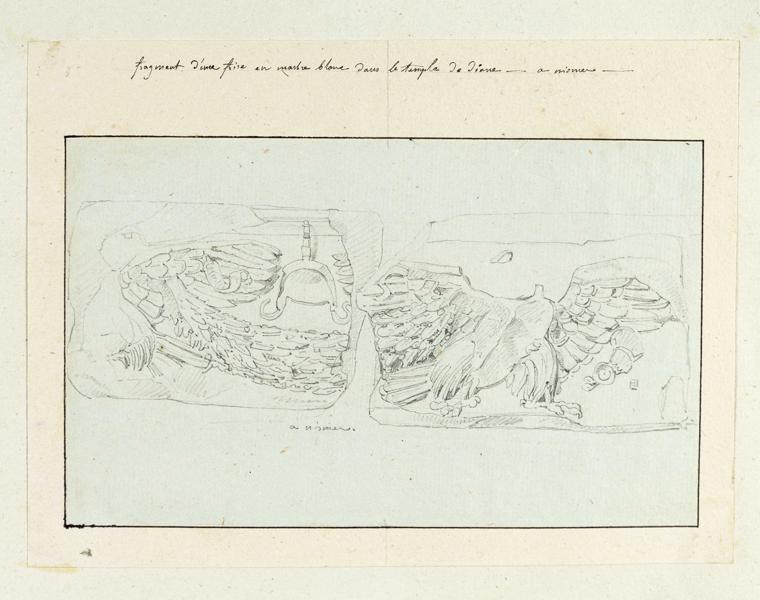 fragment d'une frise en marbre blanc dans le temple de diane — a nismes —
a nismes.